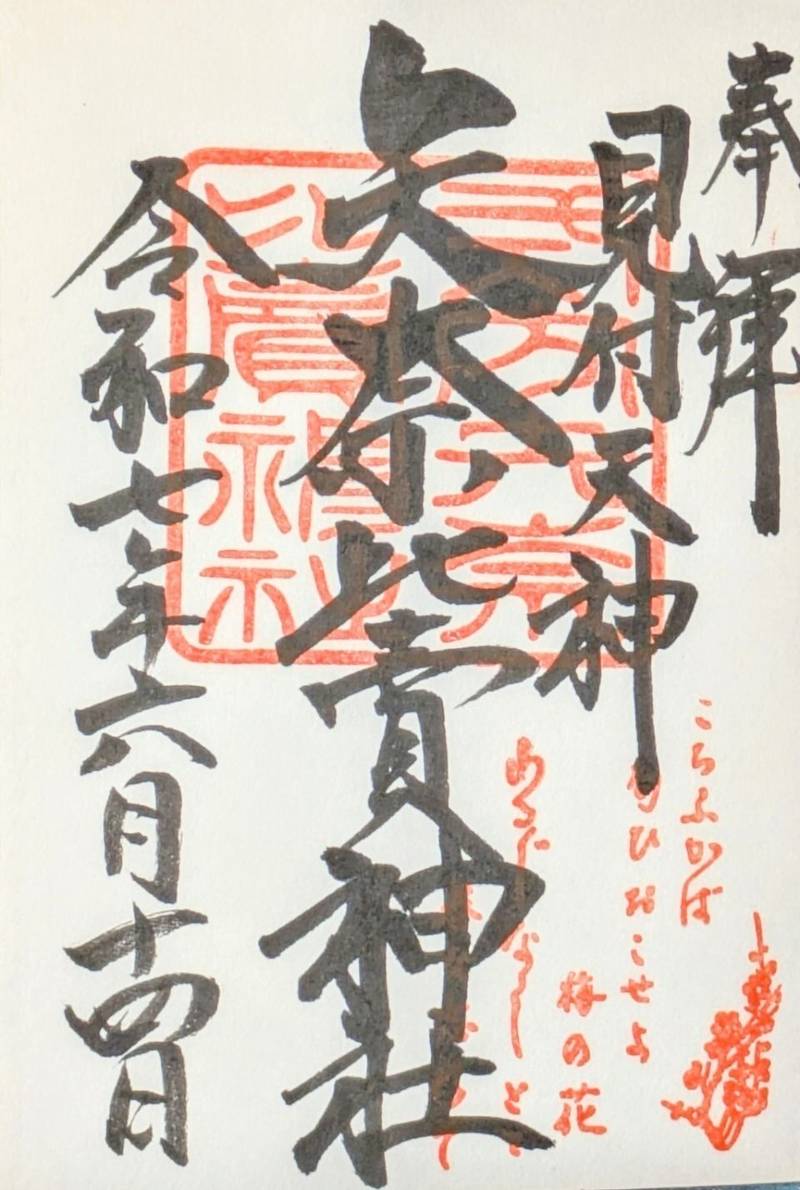 奉拝
見付天神
矢奈比賣神社
令和七年六月十四日
比賣神社
こちふかば
匂ひおこせよ
梅の花
あるじなしと